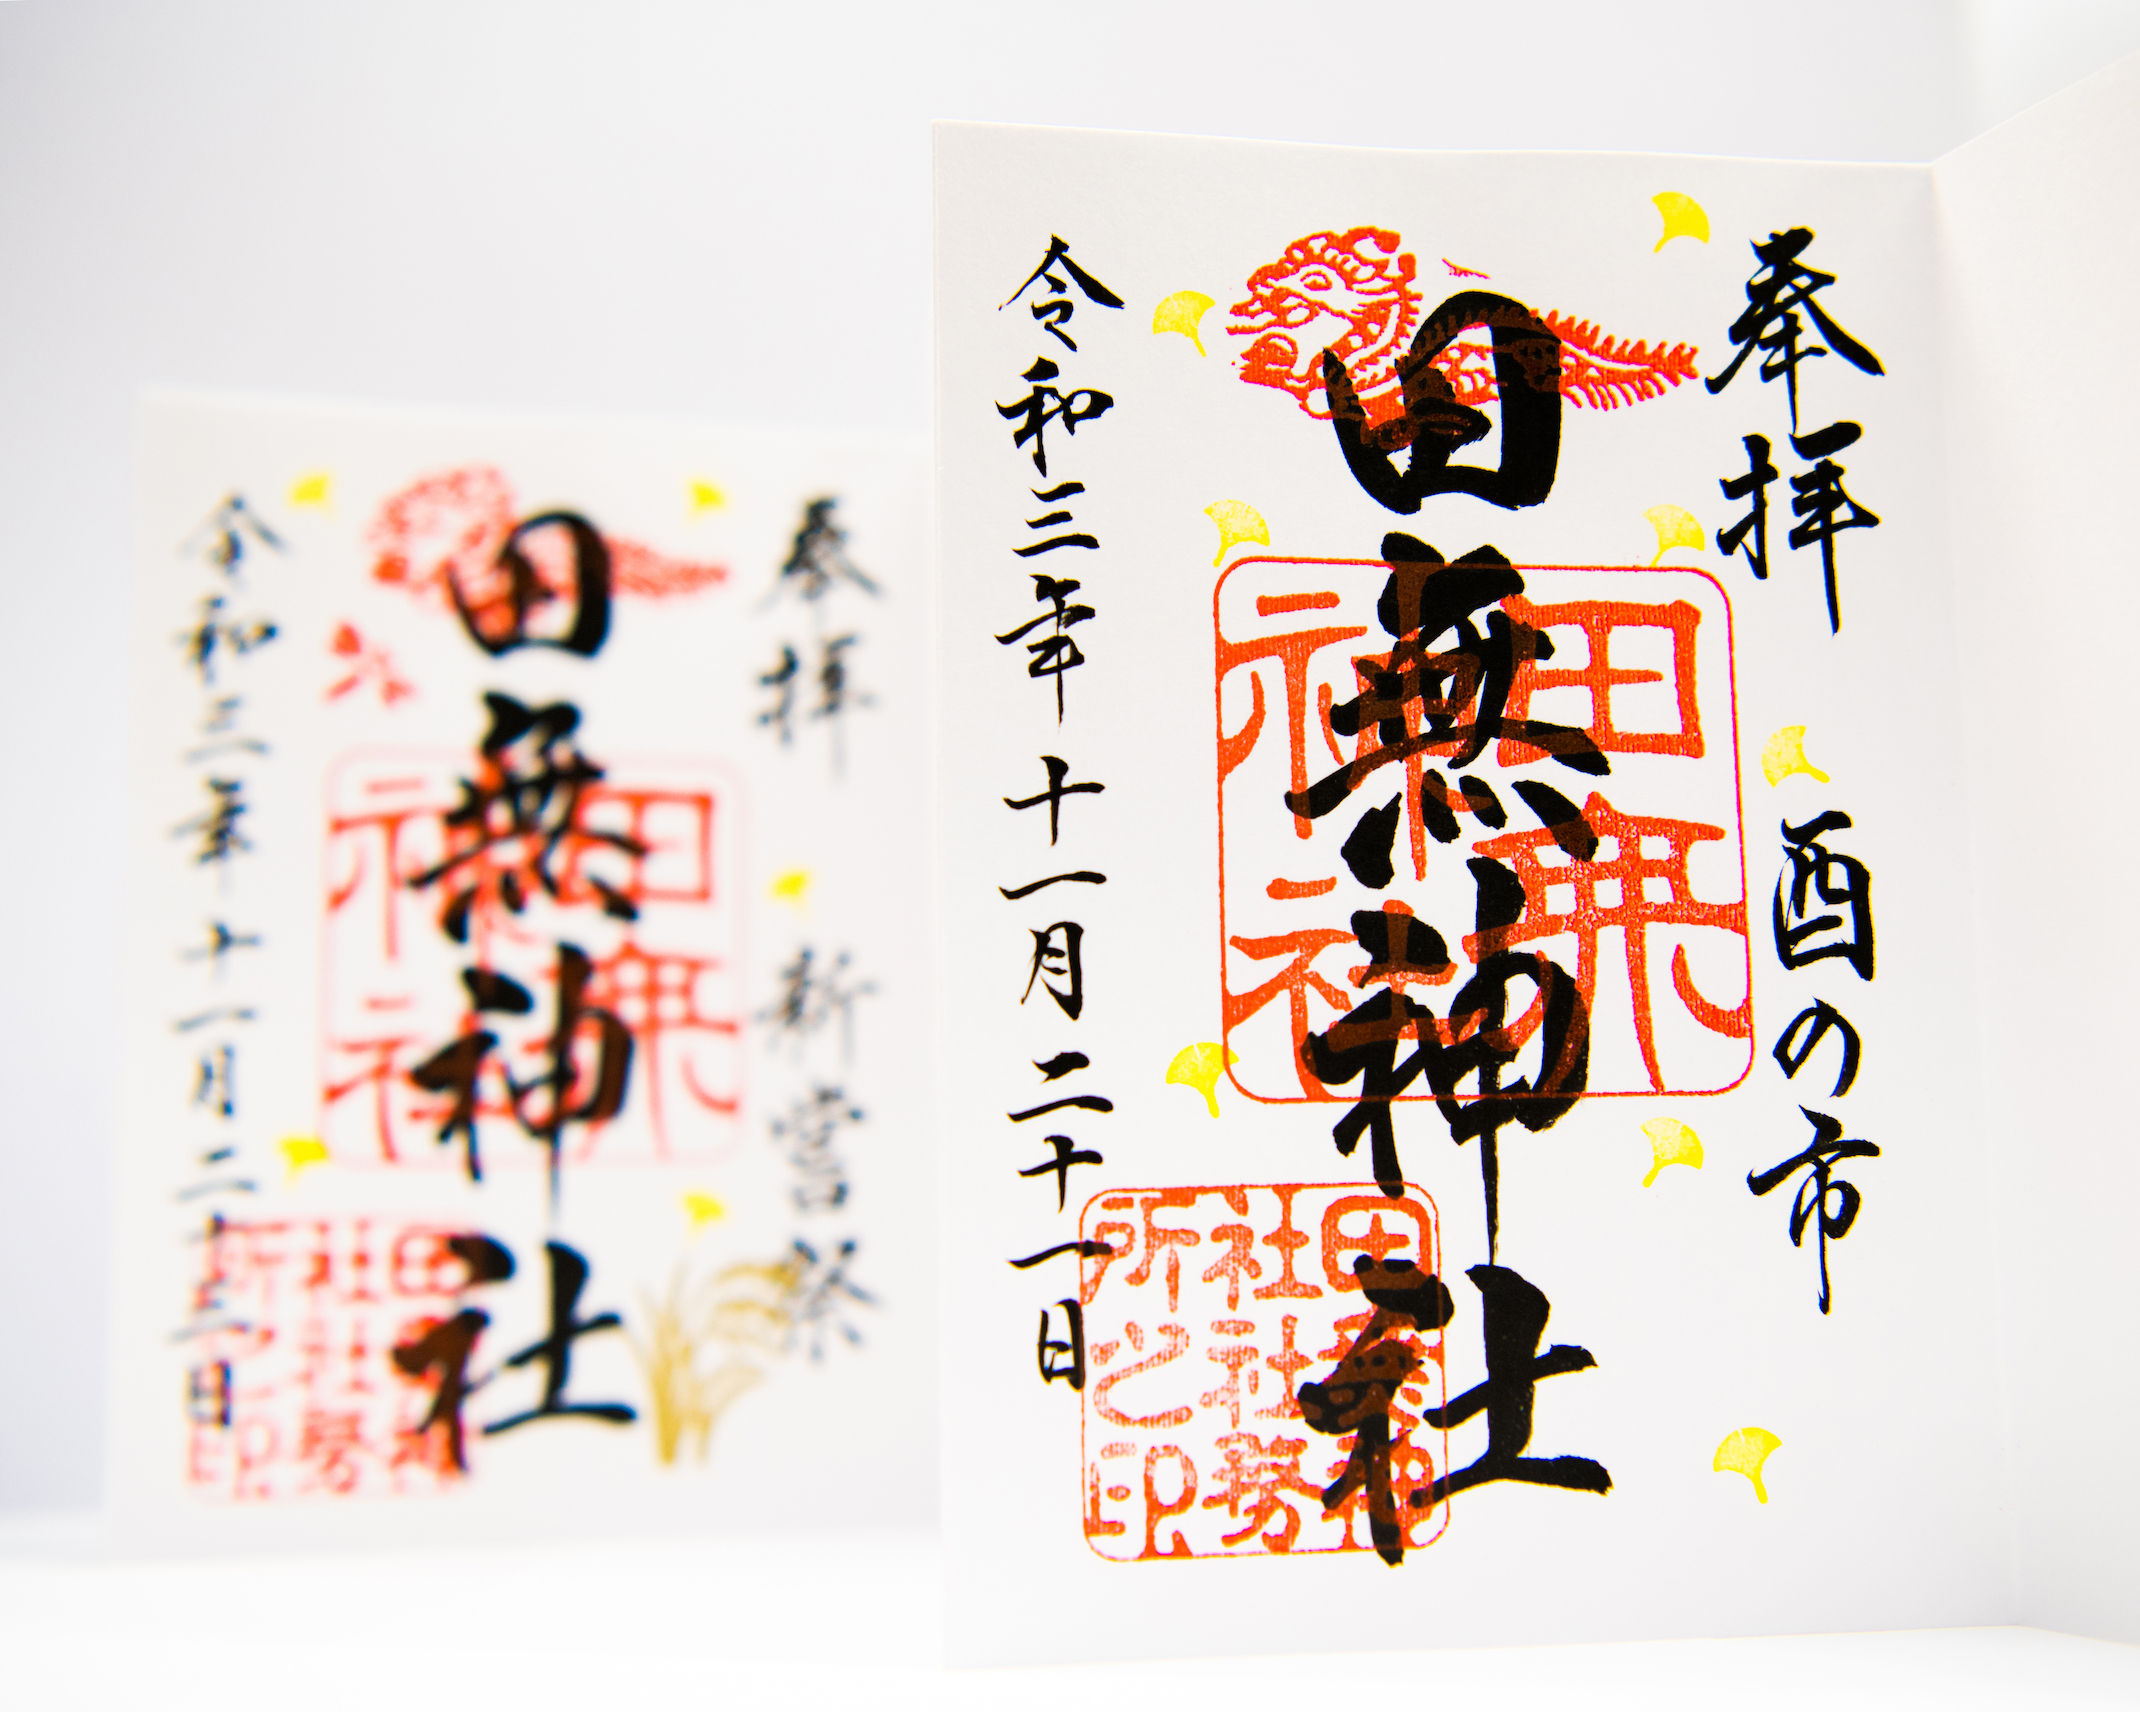 奉拝
酉の市
田無神社
田無神社
田無神社社務所之印
令和三年十一月二十一日
奉拝
新嘗祭
田無神社
田無神社
田無神社社務所之印
令和三年十一月二十三日